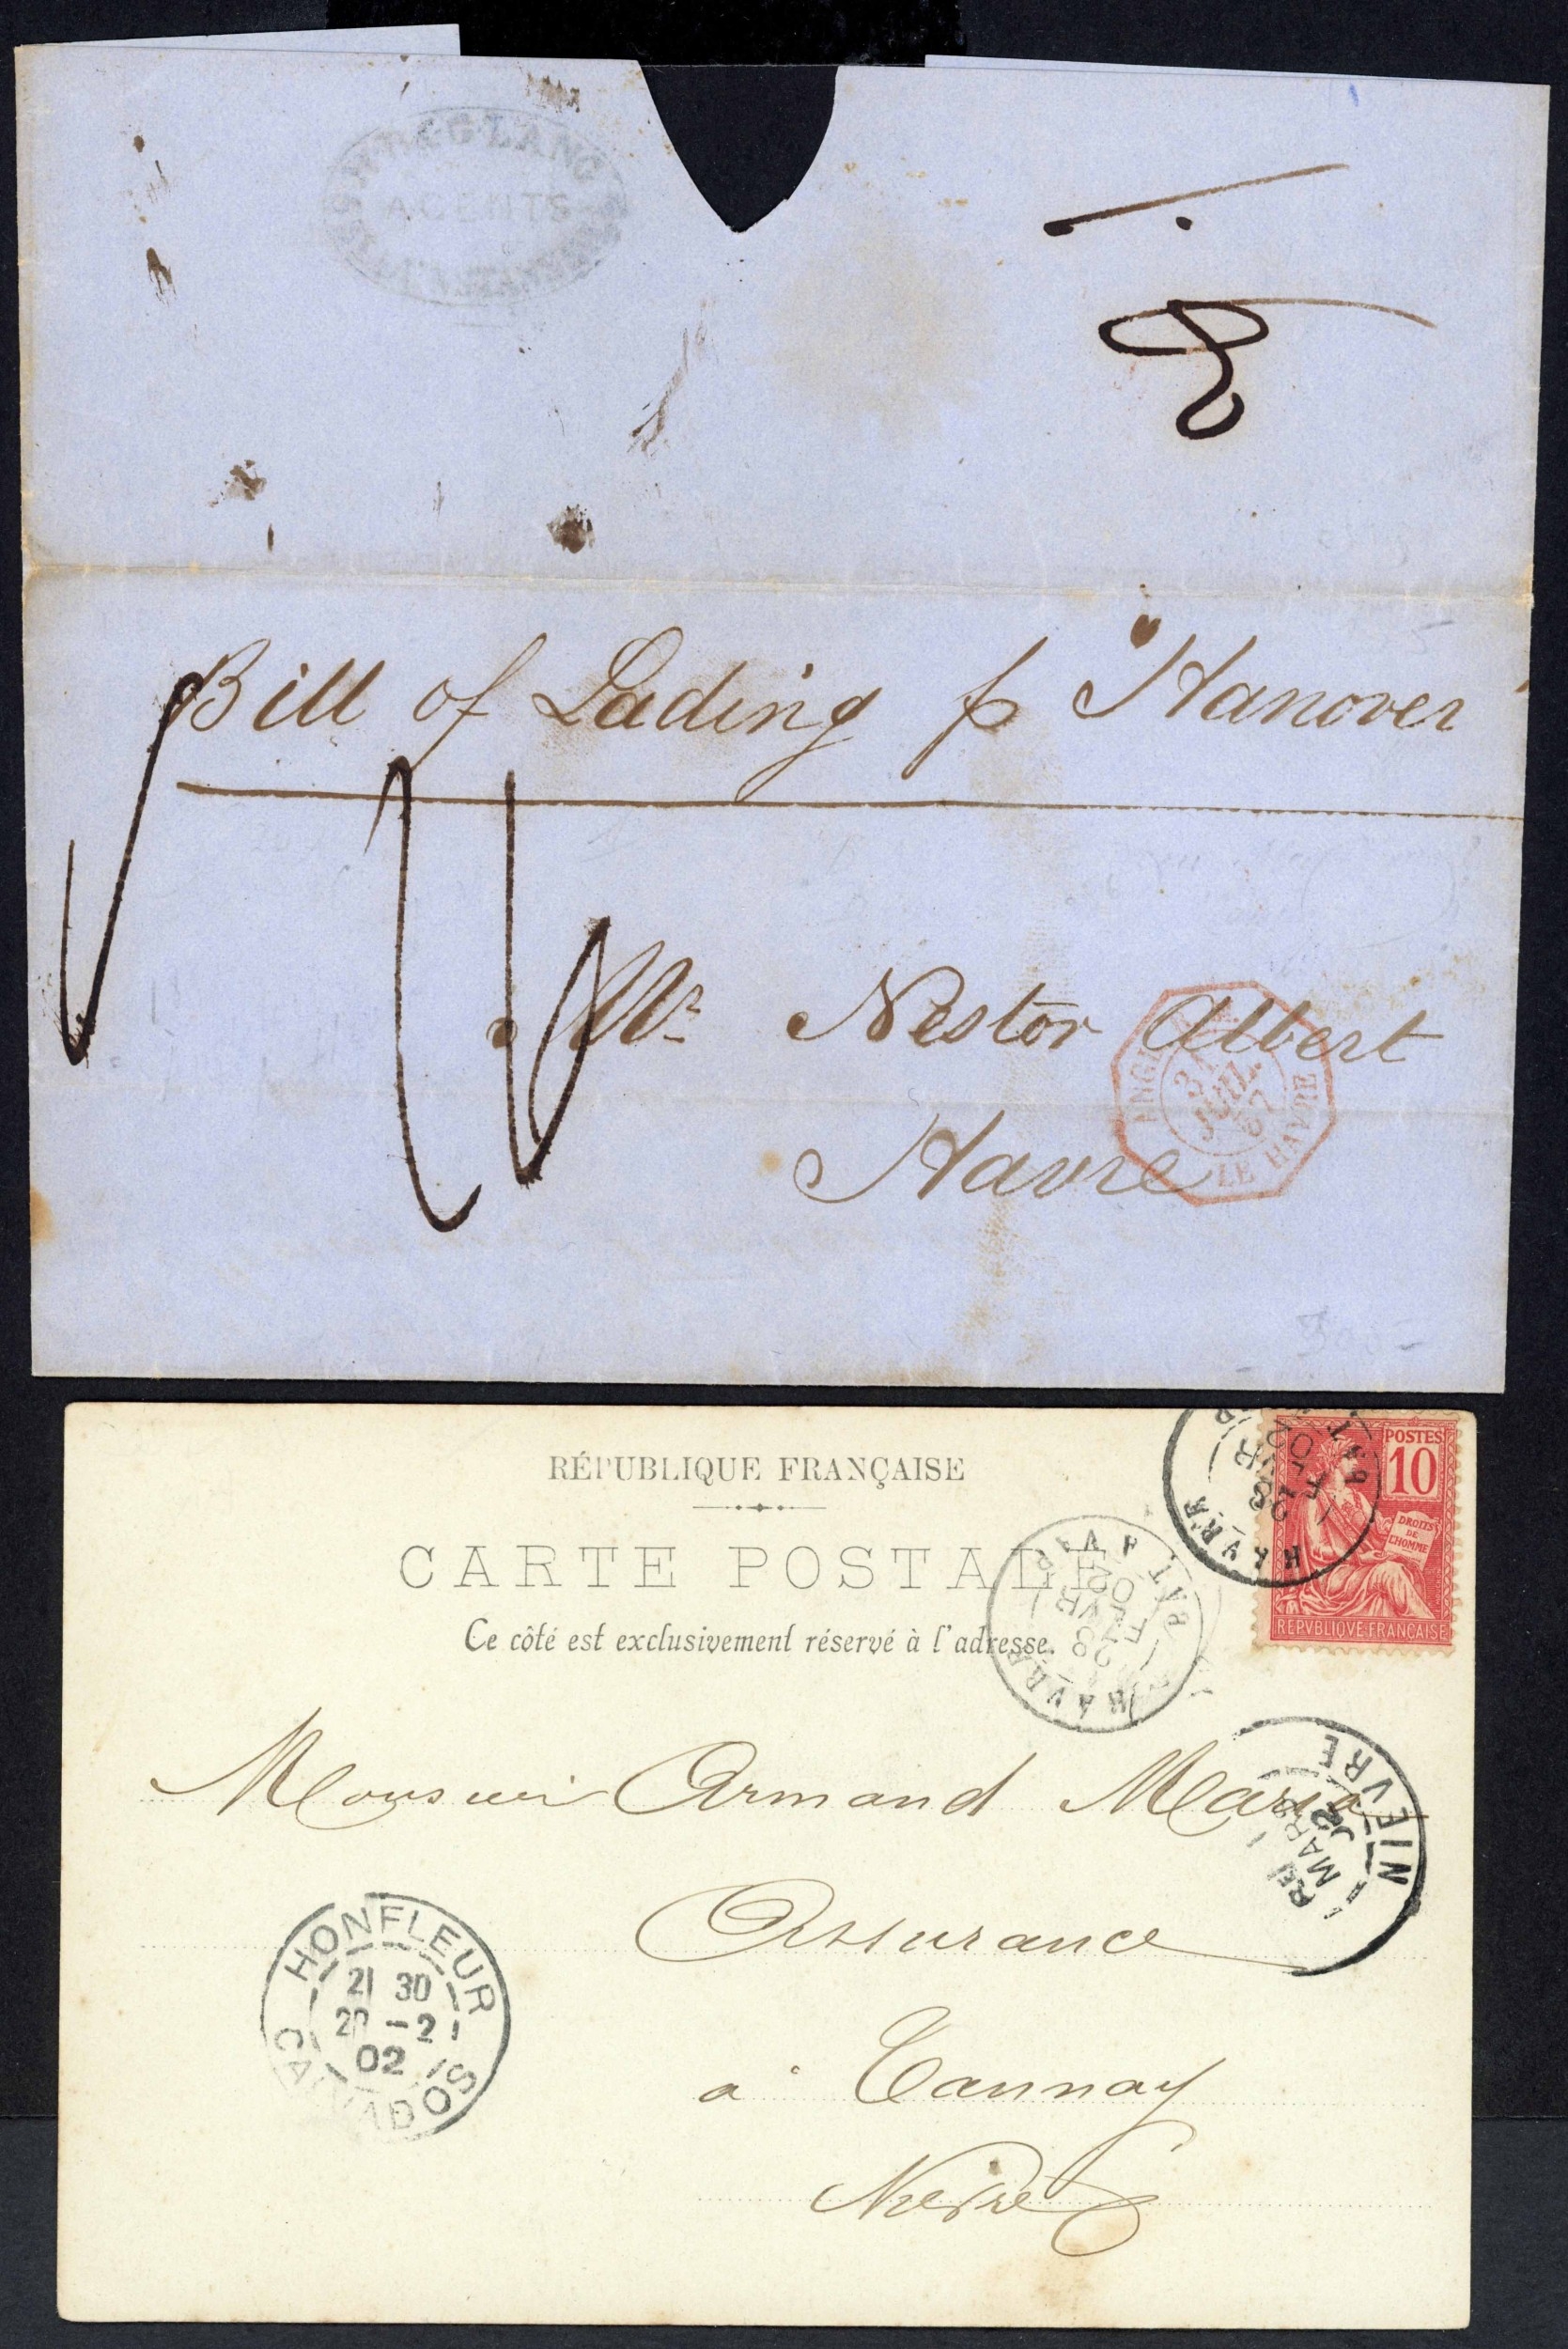 & G. LANG
AGENTS
8
Bill of Lading p "Hanover"
Mr. Nestor Albert
Havre
ANGL.
31
JUIL.
67
LE HAVRE
RÉPUBLIQUE FRANÇAISE
CARTE POSTALE
Ce côté est exclusivement réservé à l'adresse.
POSTES
10
DROITS
DE
L'HOMME
REPVBLIQVE FRANÇAISE
HAVRE
28
FEVR
02
BAT A VAP
HAVRE
28
FEVR
02
BAT A VAP
Monsieur Armand
Assurance
à Tannay
Nièvre
NIEVRE
MARS
02
HONFLEUR
21 30
-2
02
CALVADOS